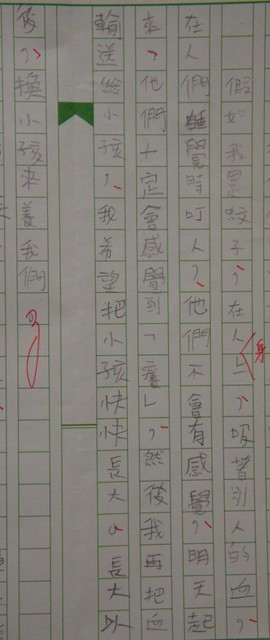 假如我是蚊子，在人上，吸著別人的血，
在人們睡覺時叮人，他們不會有感覺，明天起
來，他們一定會感覺到「癢」，然後我再把血
輸送給小孩，我希望把小孩快快長大。長大以
後，換小孩來養我們。
身